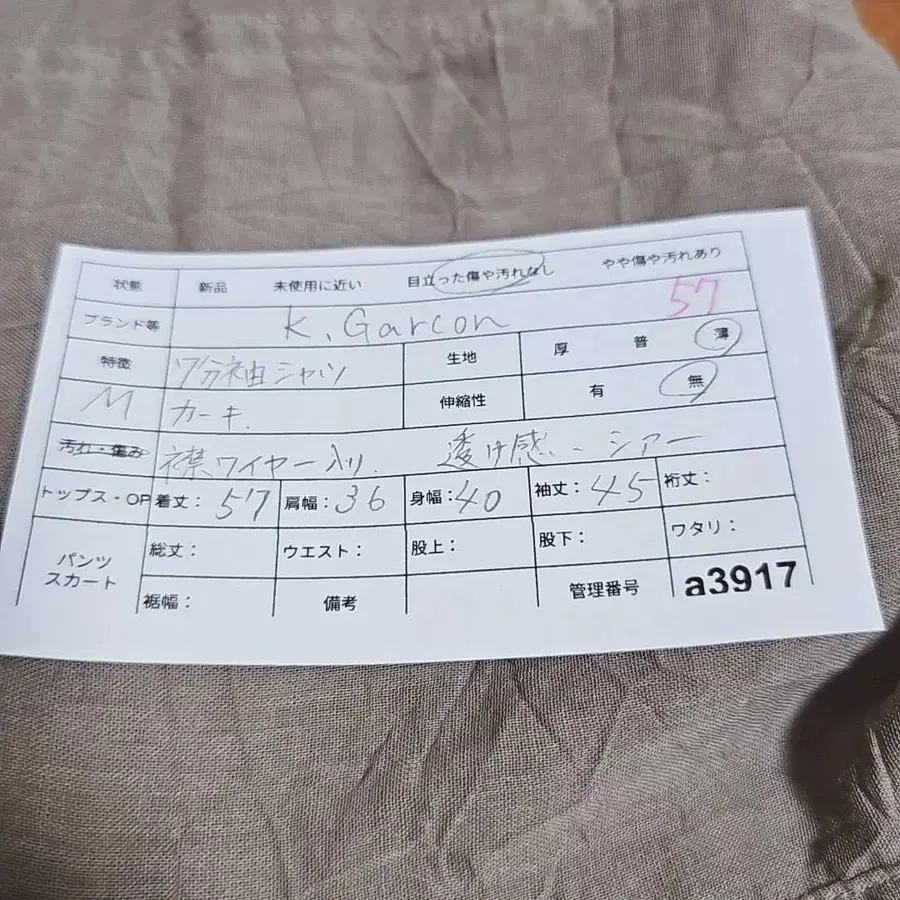 状態 新品 未使用に近い 目立った傷や汚れなし やや傷や汚れあり
ブランド等 K.Garcon 57
特徴 7分袖シャツ 生地 厚 普 薄
M カーキ. 伸縮性 有 無
汚れ・傷み 襟ワイヤー入り. 透け感.. シアー
トップス・OP 着丈:57 肩幅:36 身幅:40 袖丈:45 裄丈:
パンツ スカート 総丈: ウエスト: 股上: 股下: ワタリ:
裾幅: 備考 管理番号 a3917